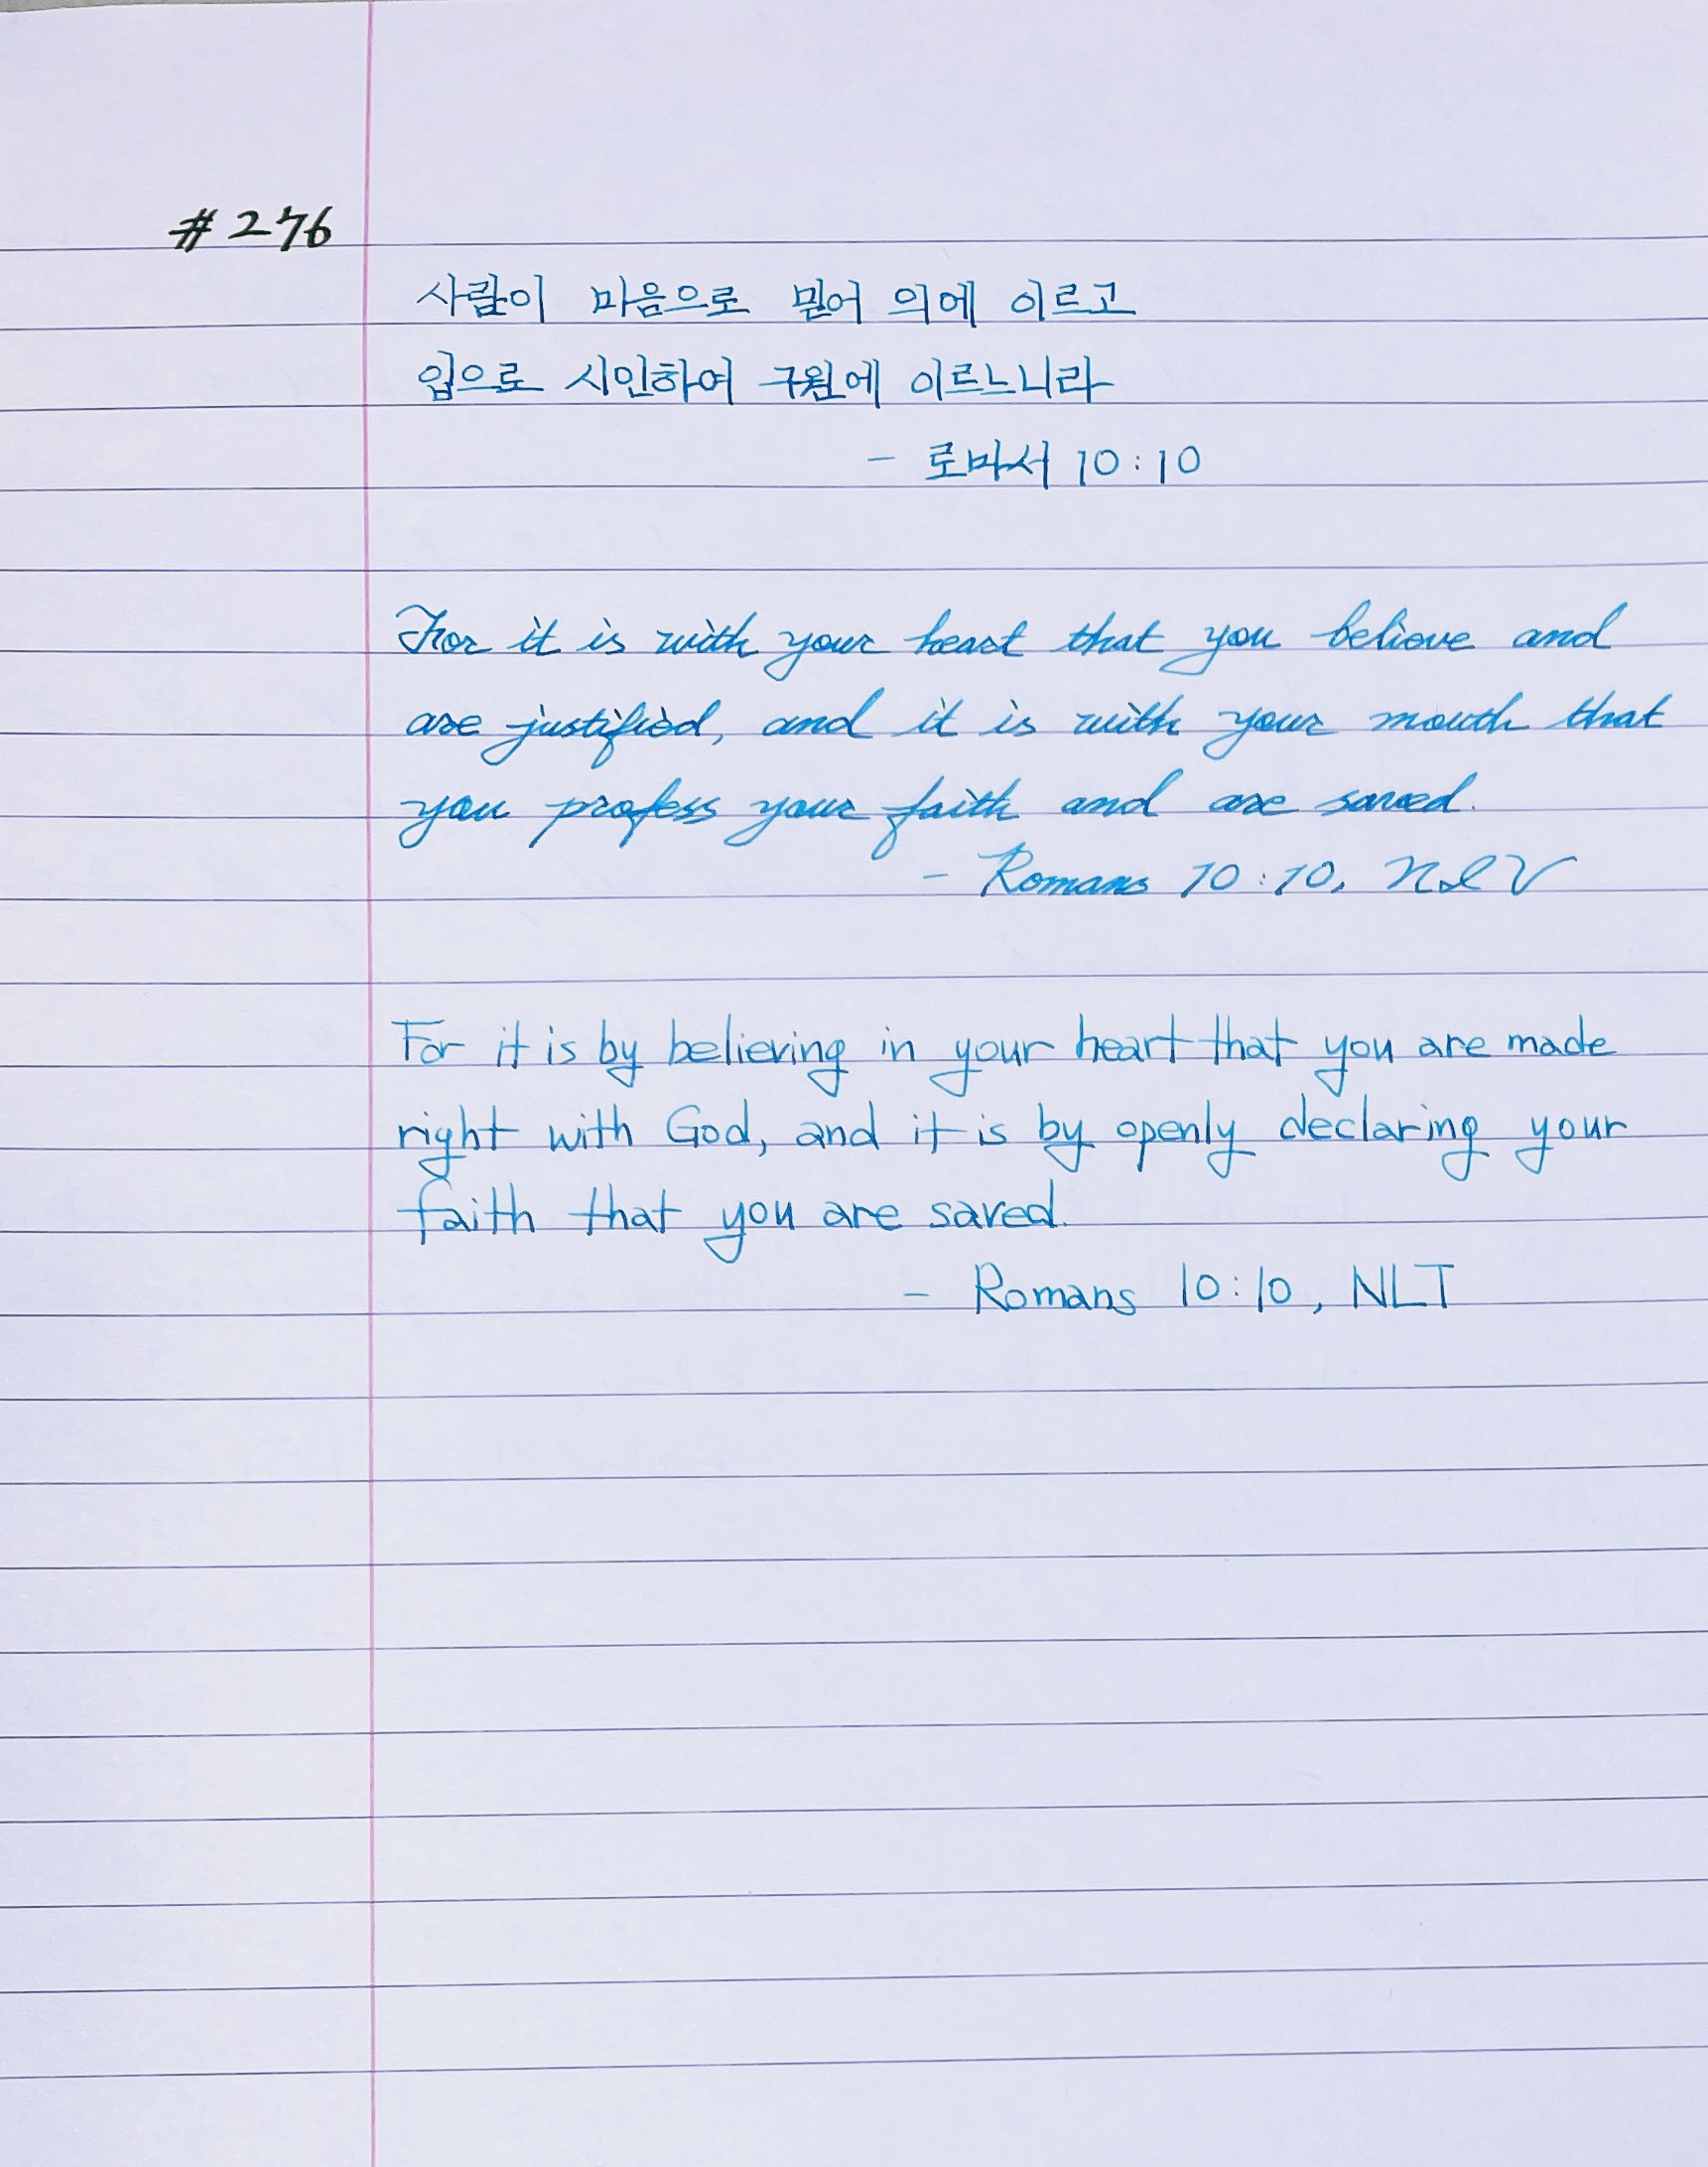 #276
사람이 마음으로 믿어 의에 이르고
입으로 시인하여 구원에 이르느니라
- 로마서 10:10
For it is with your heart that you believe and
are justified, and it is with your mouth that
you profess your faith and are saved.
- Romans 10:10, NIV
For it is by believing in your heart that you are made
right with God, and it is by openly declaring your
faith that you are saved.
- Romans 10:10, NLT